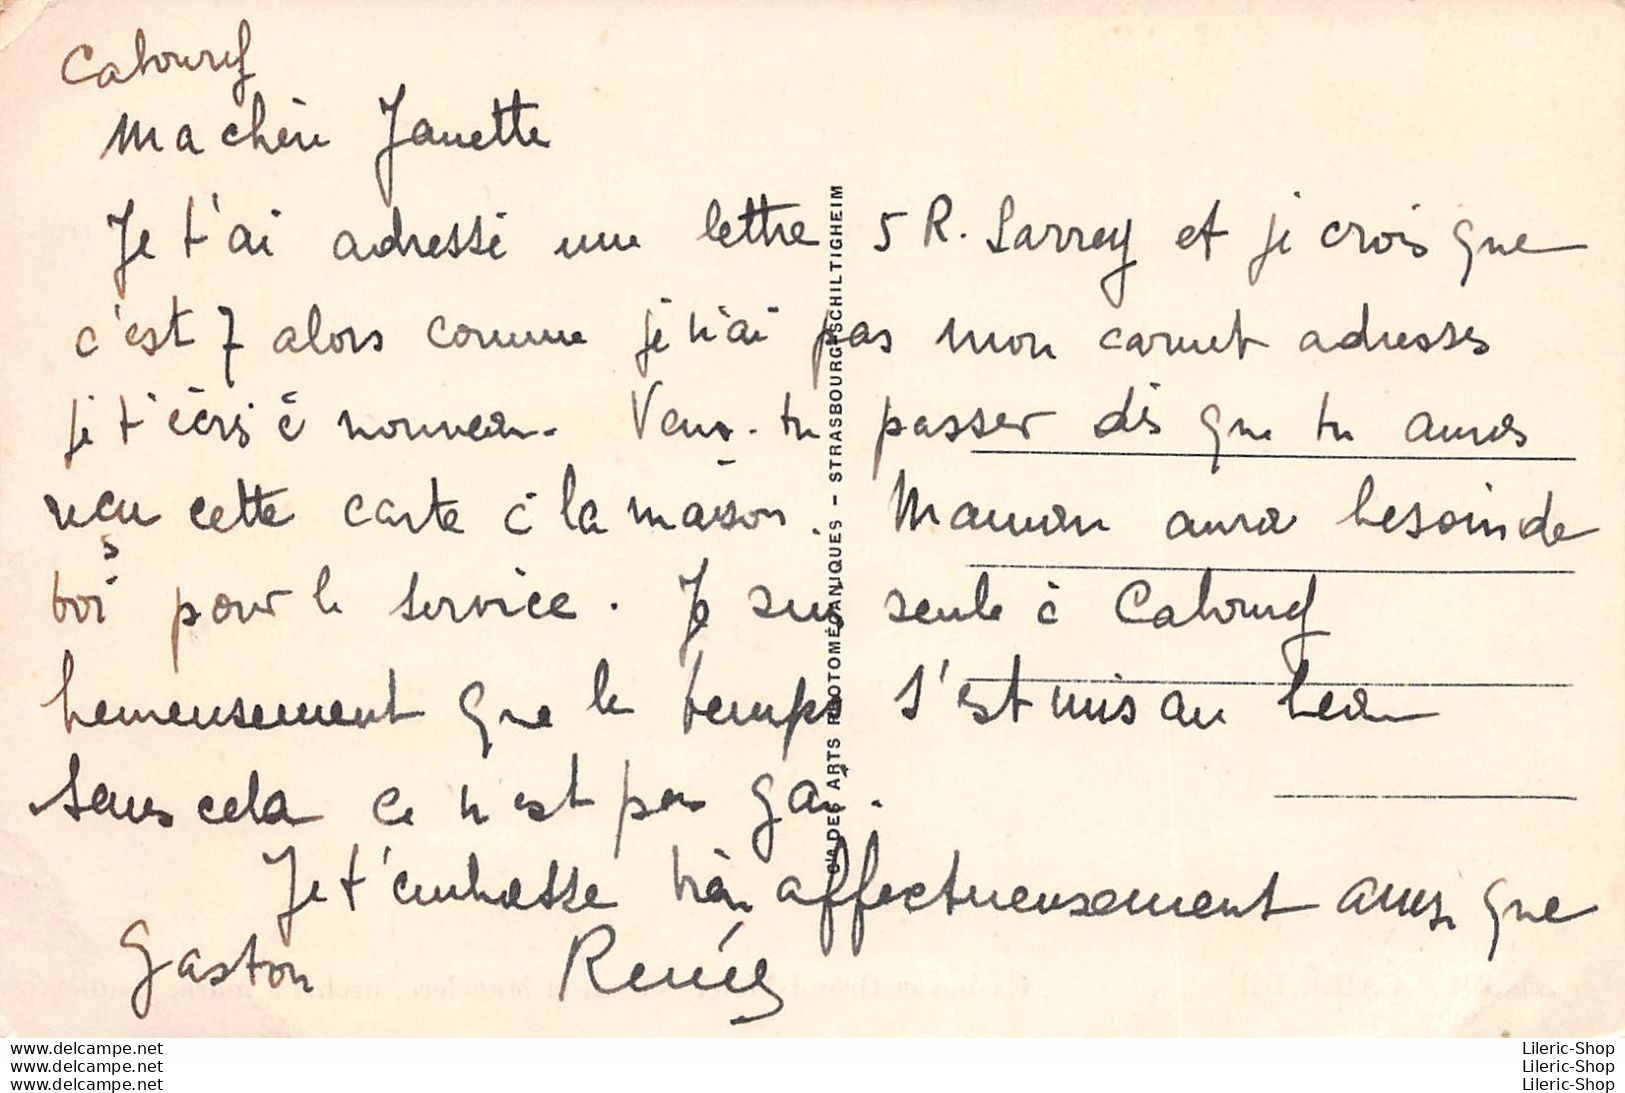 Cabourg
Ma chère Janette
Je t'ai adressé une lettre 5 R. Larrey et je crois que
c'est 7 alors comme je n'ai pas mon carnet adresses
je t'écris à nouveau. Veux-tu passer dès que tu auras
reçu cette carte à la maison. Maman aura besoin de
toi pour le service. Je suis seule à Cabourg
heureusement que le temps s'est mis au beau
sans cela ce n'est pas gai.
Je t'embrasse très affectueusement ainsi que
Gaston Renée
Cie DES ARTS PHOTOMÉCANIQUES - STRASBOURG-SCHILTIGHEIM
www.delcampe.net
www.delcampe.net
www.delcampe.net
Lileric-Shop
Lileric-Shop
Lileric-Shop